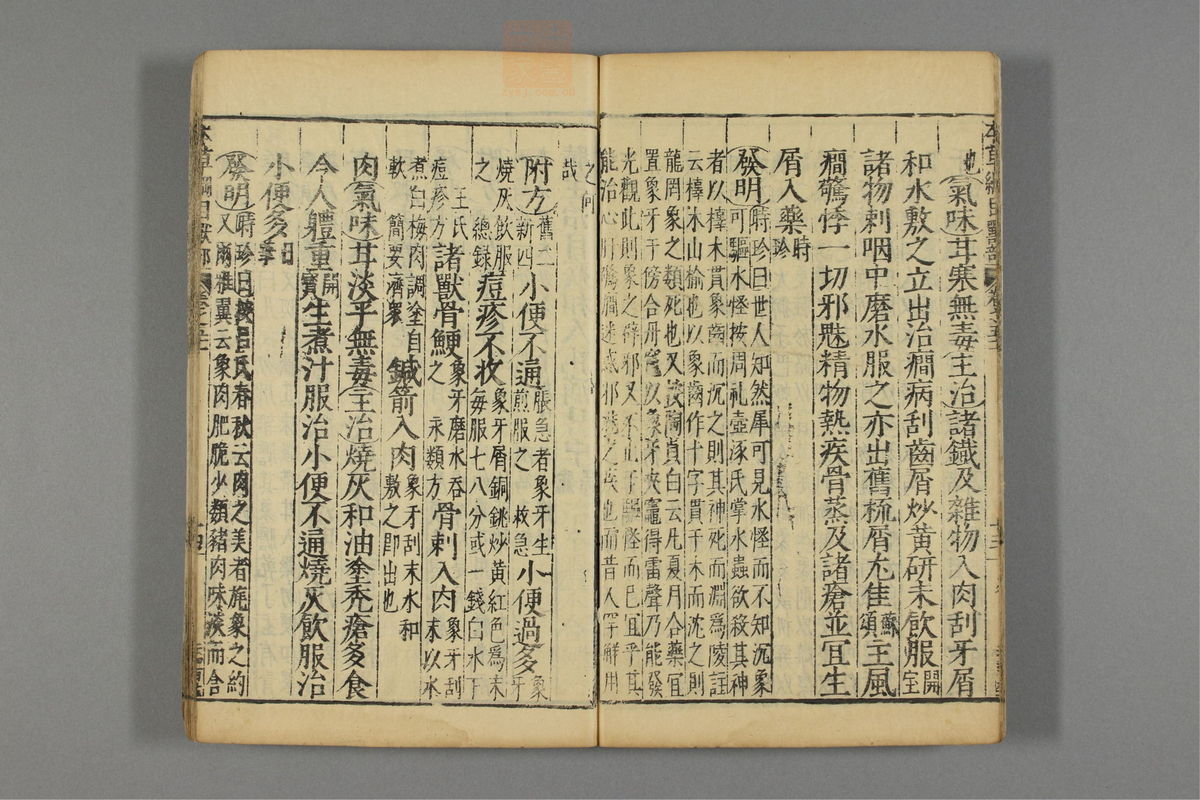 也
氣味甘寒無毒主治諸鐵及雜物入肉刮牙屑
和水敷之立出治癇病刮齒屑炒黃研末飲服開宝
諸物刺咽中磨水服之亦出舊梳屑尤佳蘇頌主風
癇驚悸一切邪魅精物熱疾骨蒸及諸瘡並宜生
屑入藥時珍
發明時珍曰世人知然犀可見水怪而不知沉象
可驅水怪按周礼壺涿氏掌水蟲欲殺其神
者以橭木貫象齒而沉之則其神死而淵爲陵註
云橭木山榆也以象齒作十字貫于木而沈之則
龍罔象之類死也又按陶貞白云凡夏月合藥宜
置象牙于傍合丹竈以象牙夾竈得雷聲乃能發
光觀此則象之辟邪又不止于驅怪而已宜乎其
能治心肝驚癇迷惑邪魅之疾也而昔人罕解用
之何
哉
附方舊二新四小便不通脹急者象牙生煎服之救急小便過多象牙
燒灰飲服之總録痘疹不收象牙屑銅銚炒黃紅色爲末每服七八分或一錢白水下
王氏痘疹方諸獸骨鯁象牙磨水吞之永類方骨刺入肉象牙刮末以水
煮白梅肉調塗自軟簡要濟衆鍼箭入肉象牙刮末水和敷之即出也
肉氣味甘淡平無毒主治燒灰和油塗禿瘡多食
今人體重開寶生煮汁服治小便不通燒灰飲服治
小便多日華
發明時珍曰按呂氏春秋云肉之美者旄象之約
又爾雅翼云象肉肥脆少類豬肉味淡而含